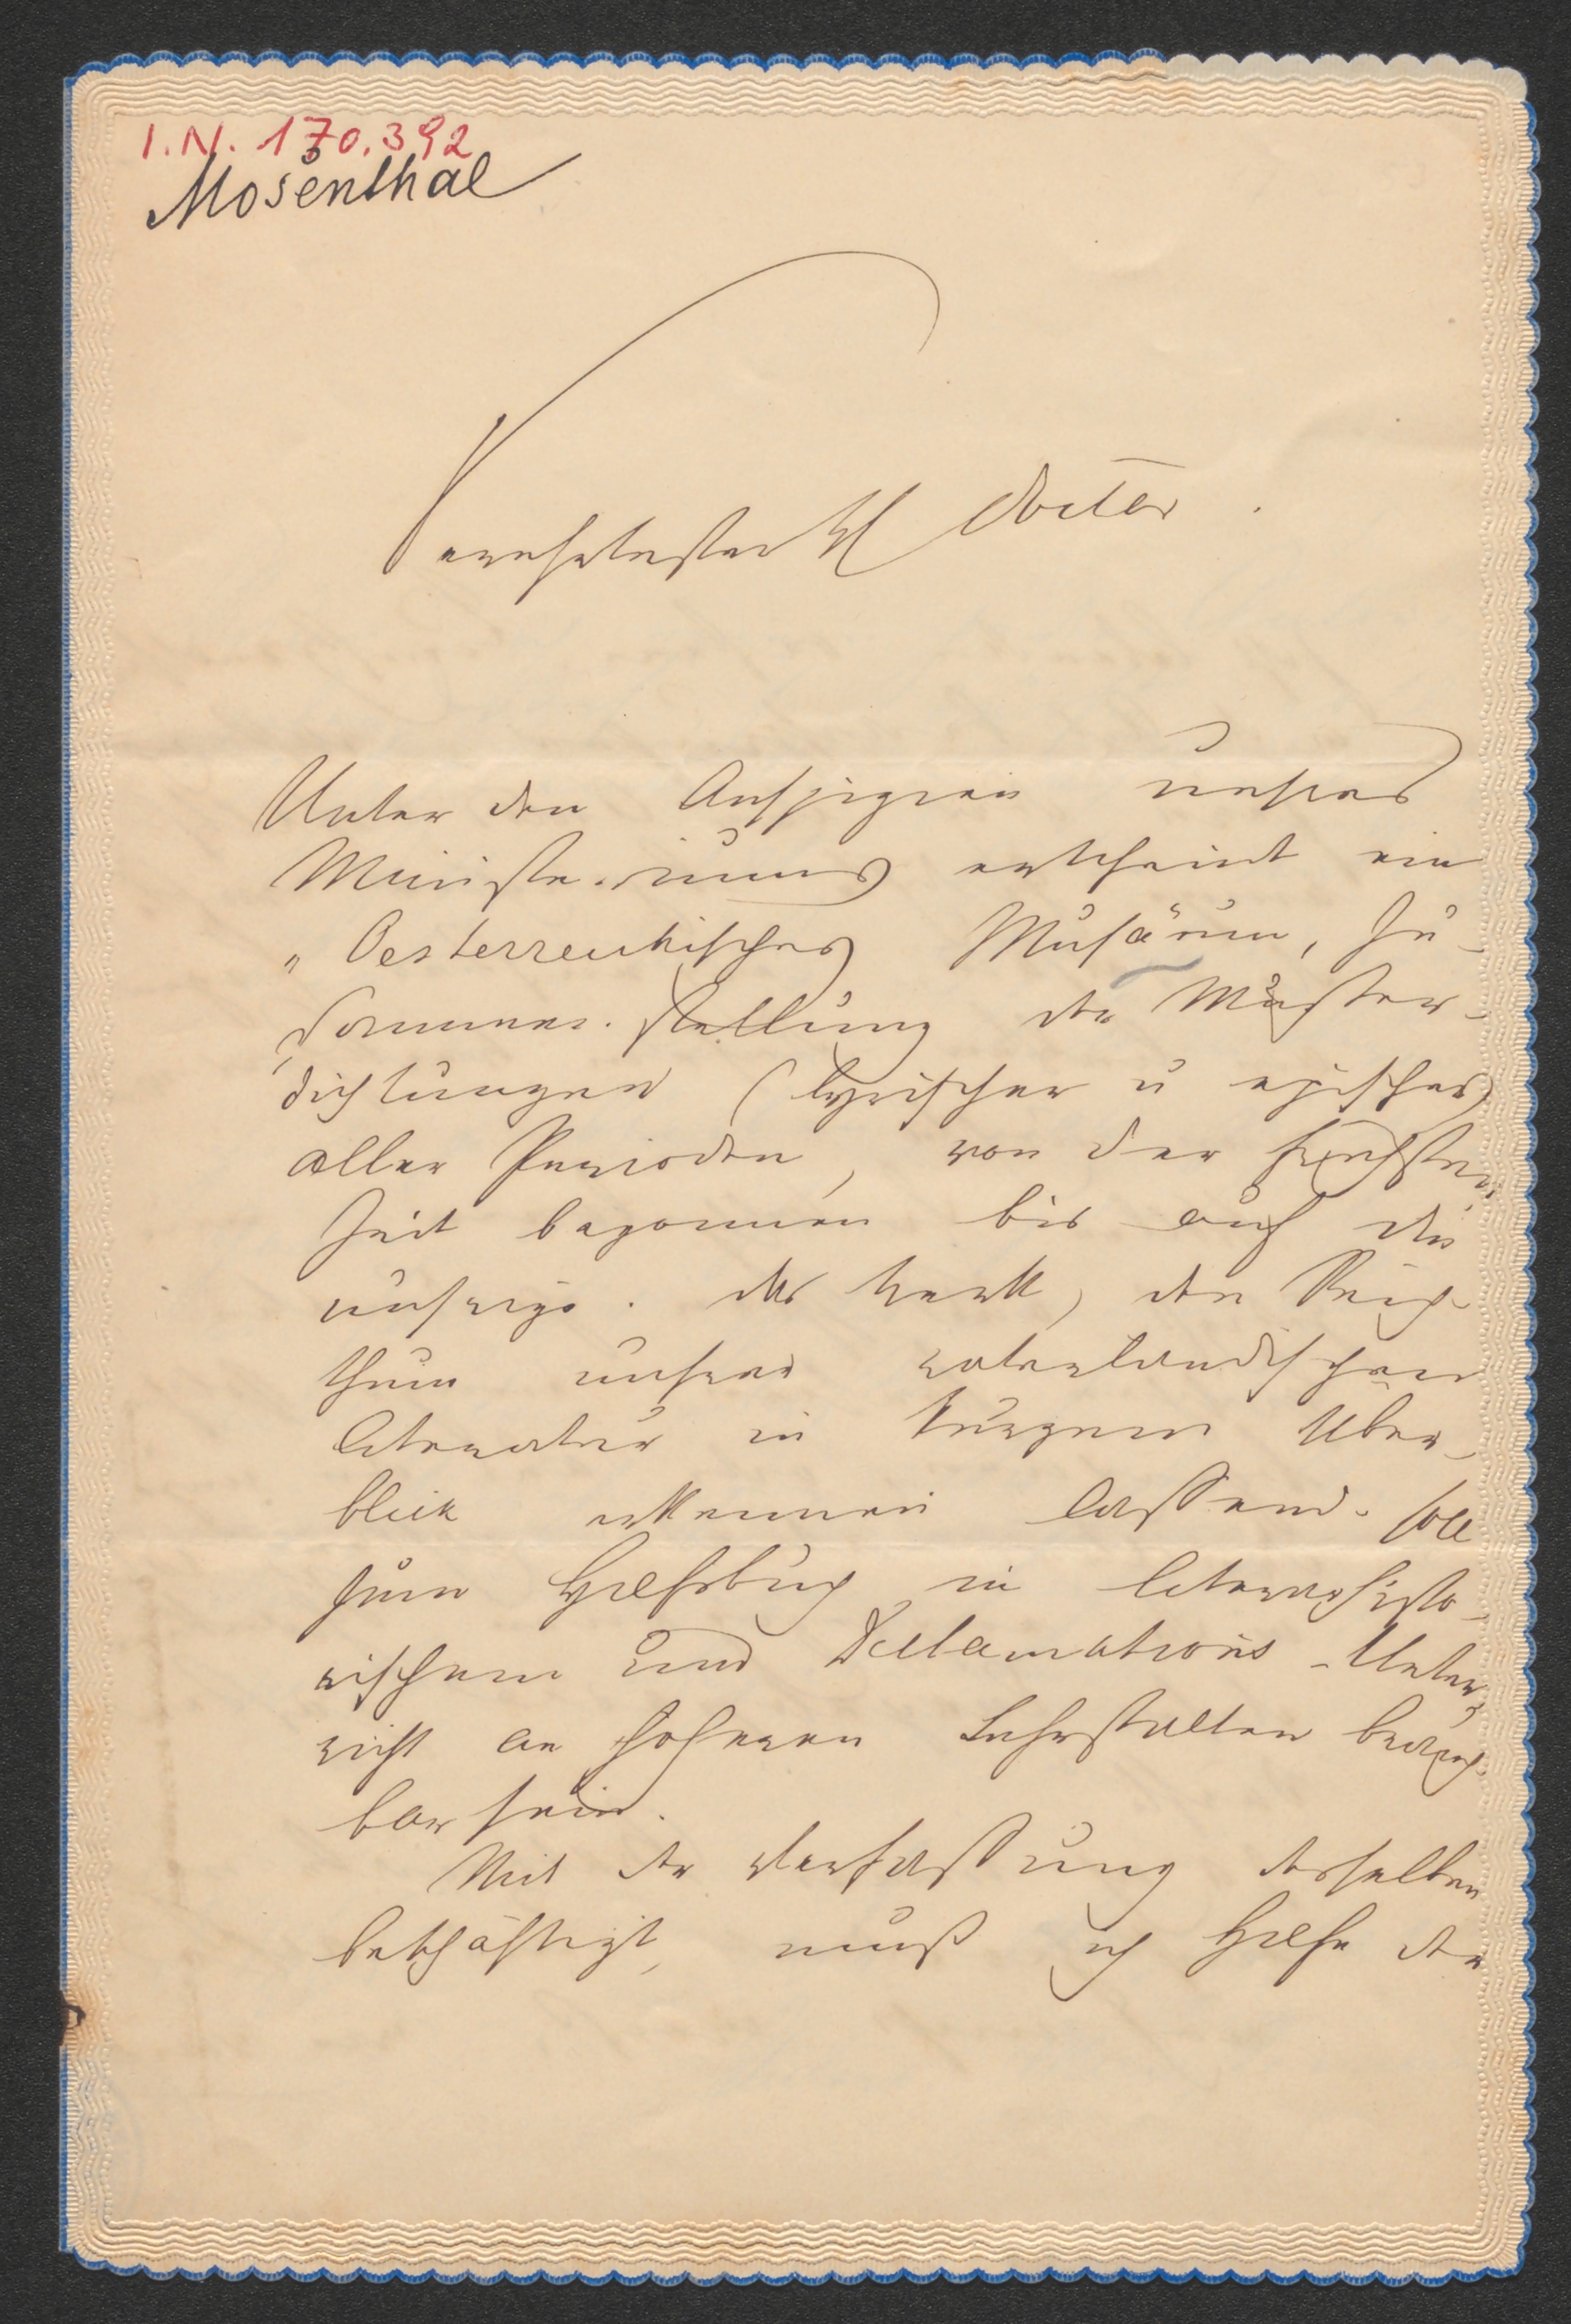 I.N. 170.392
Mosenthal
Verehrtester H Doctor.
Unter den Auspizien unseres
Ministeriums erscheint ein
„Oesterreichisches Musäum, Zu-
sammenstellung der Muster-
dichtungen (lyrischer u epischer)
aller Perioden, von der frühsten
Zeit begonnen bis auf die
unsrige. Das Werk, den Reich-
thum unsrer vaterländischen
Literatur in kurzem Über-
blick erkennen lassend. soll
zum Hilfsbuch in literarhisto-
rischem und Declamations-Unter-
richt an höheren Lehrstalten brauch-
bar sein.
Mit der Verfassung desselben
beschäftigt, muß ich Hilfe der